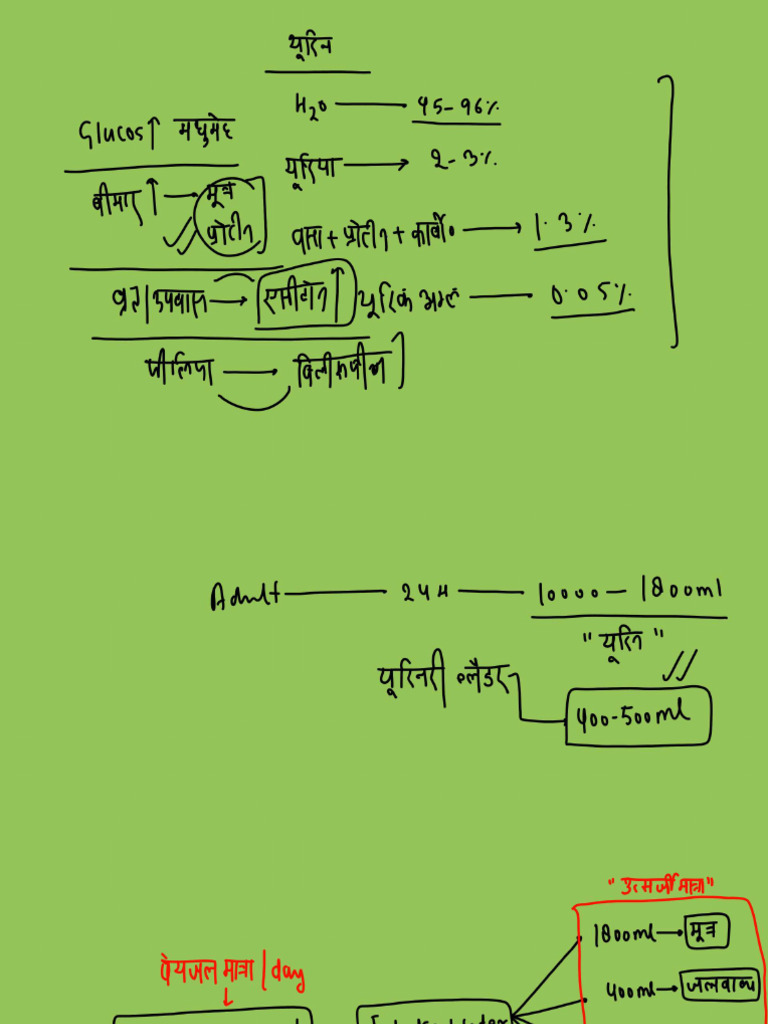 यूरिन
H₂O —— 95-96%
Glucos↑ मधुमेह
यूरिया → 2-3%
बीमार↑ → मूत्र प्रोटीन
वसा + प्रोटीन + कार्बो० → 1.3%
व्रत/उपवास → एसीटोन↑
यूरिक अम्ल —— 0.05%
पीलिया → बिलीरूबीन
Adult —— 24H —— 10000 — 1800ml
"यूरिन"
यूरिनरी ब्लैडर
400-500ml
"उत्सर्जी मात्रा"
1800ml → मूत्र
पेयजल मात्रा/day
400ml → जलवाष्प